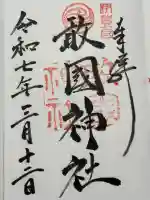 奉拝
敢國神社
令和七年三月十二日